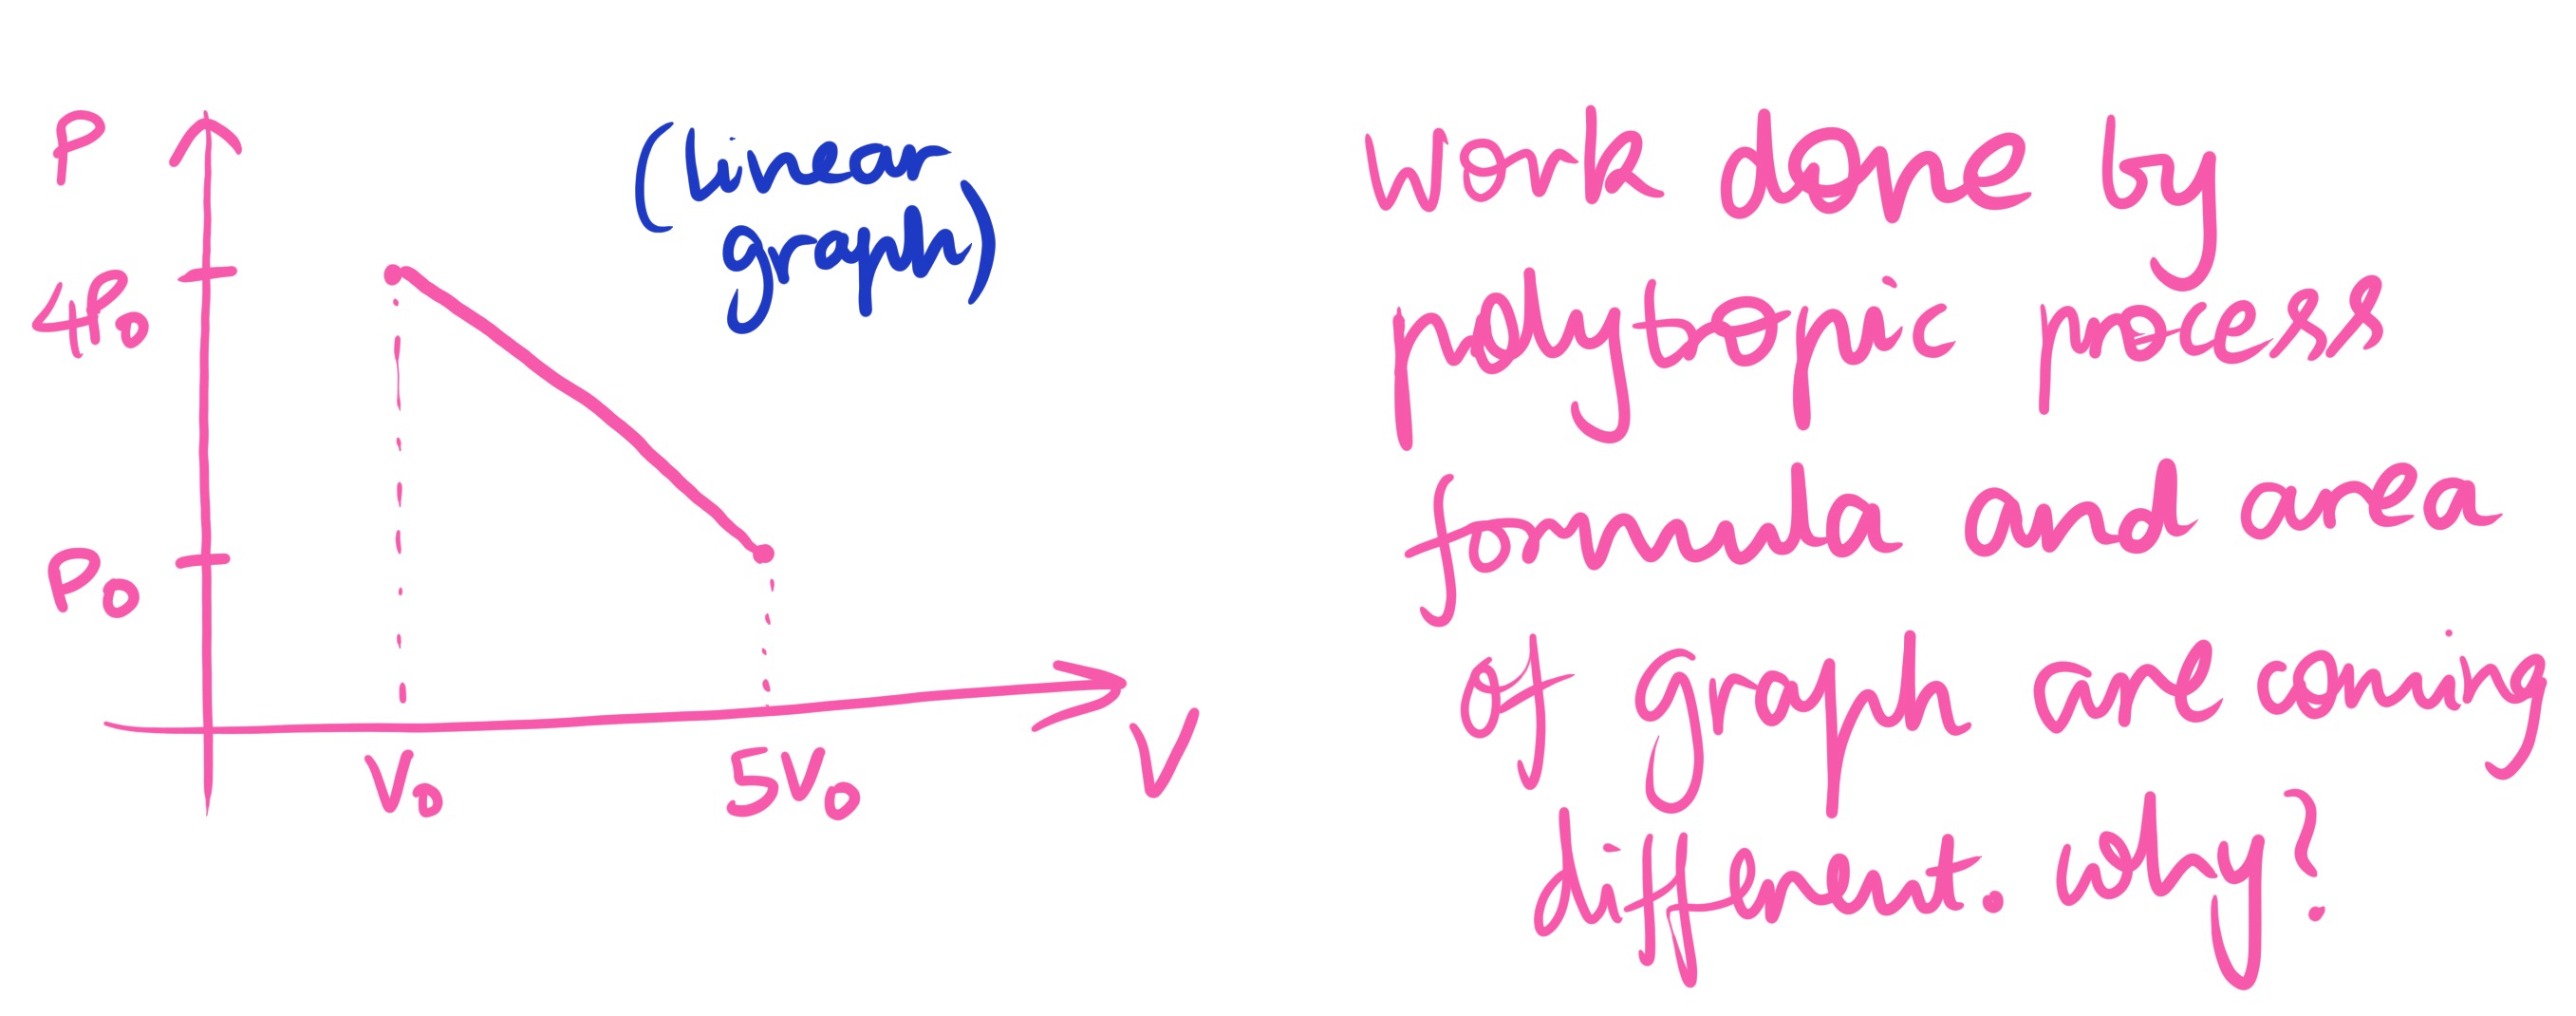 P
4P₀
P₀
V₀
5V₀
V
(linear
graph)
work done by
polytopic process
formula and area
of graph are coming
different. why?